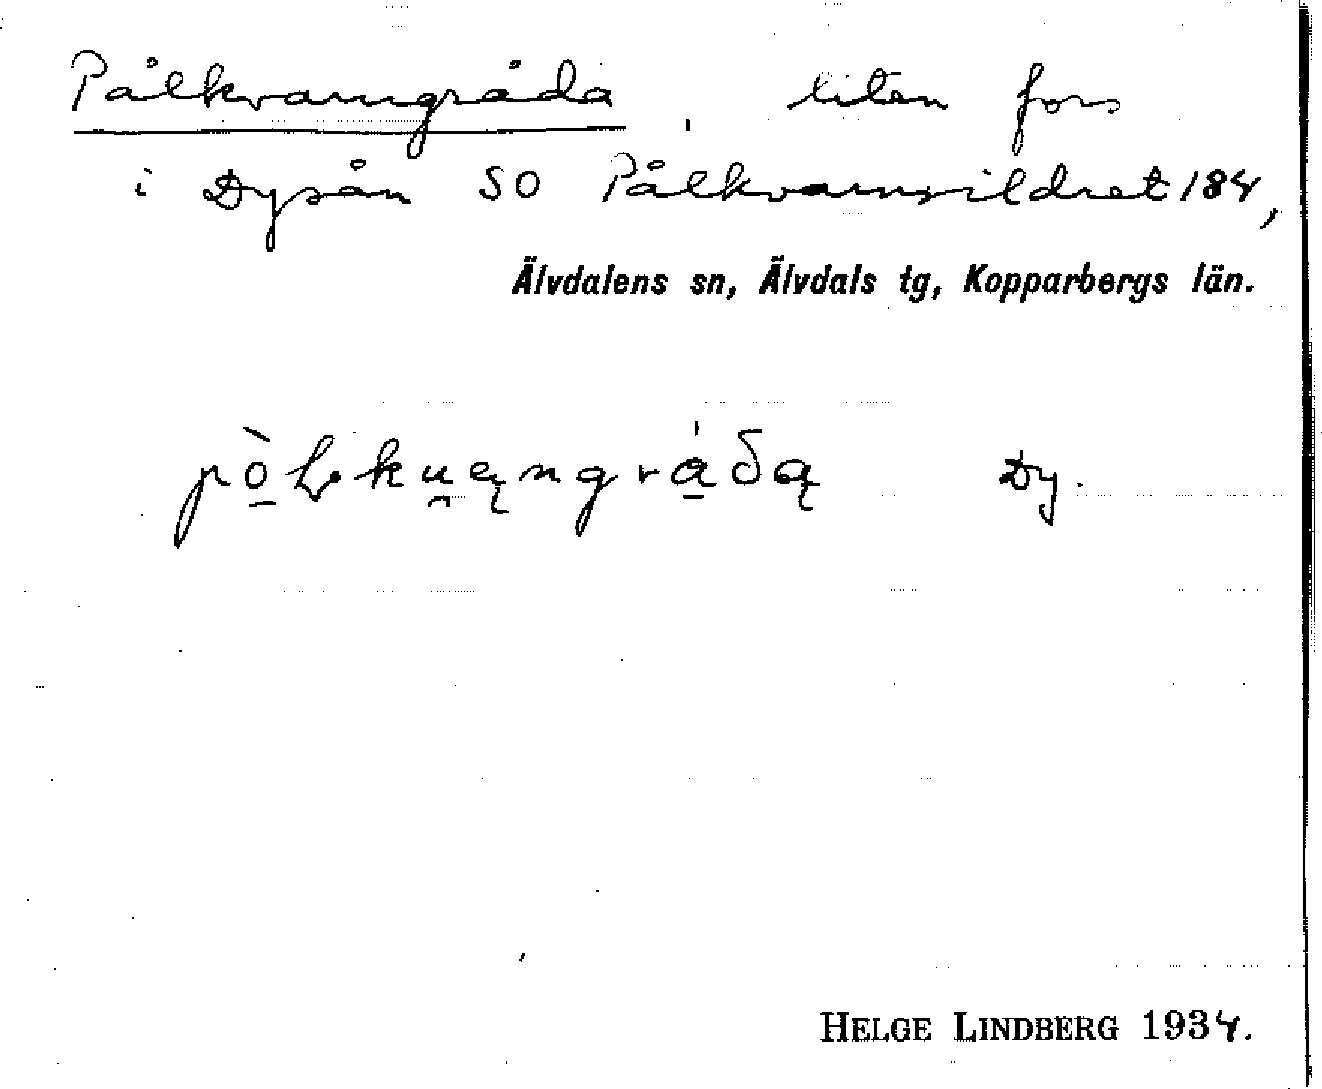 Pålkvarngråda, liten fors
i Dysån SO Pålkvarnsildret 184,
Älvdalens sn, Älvdals tg, Kopparbergs län.
Dy.
HELGE LINDBERG 1934.